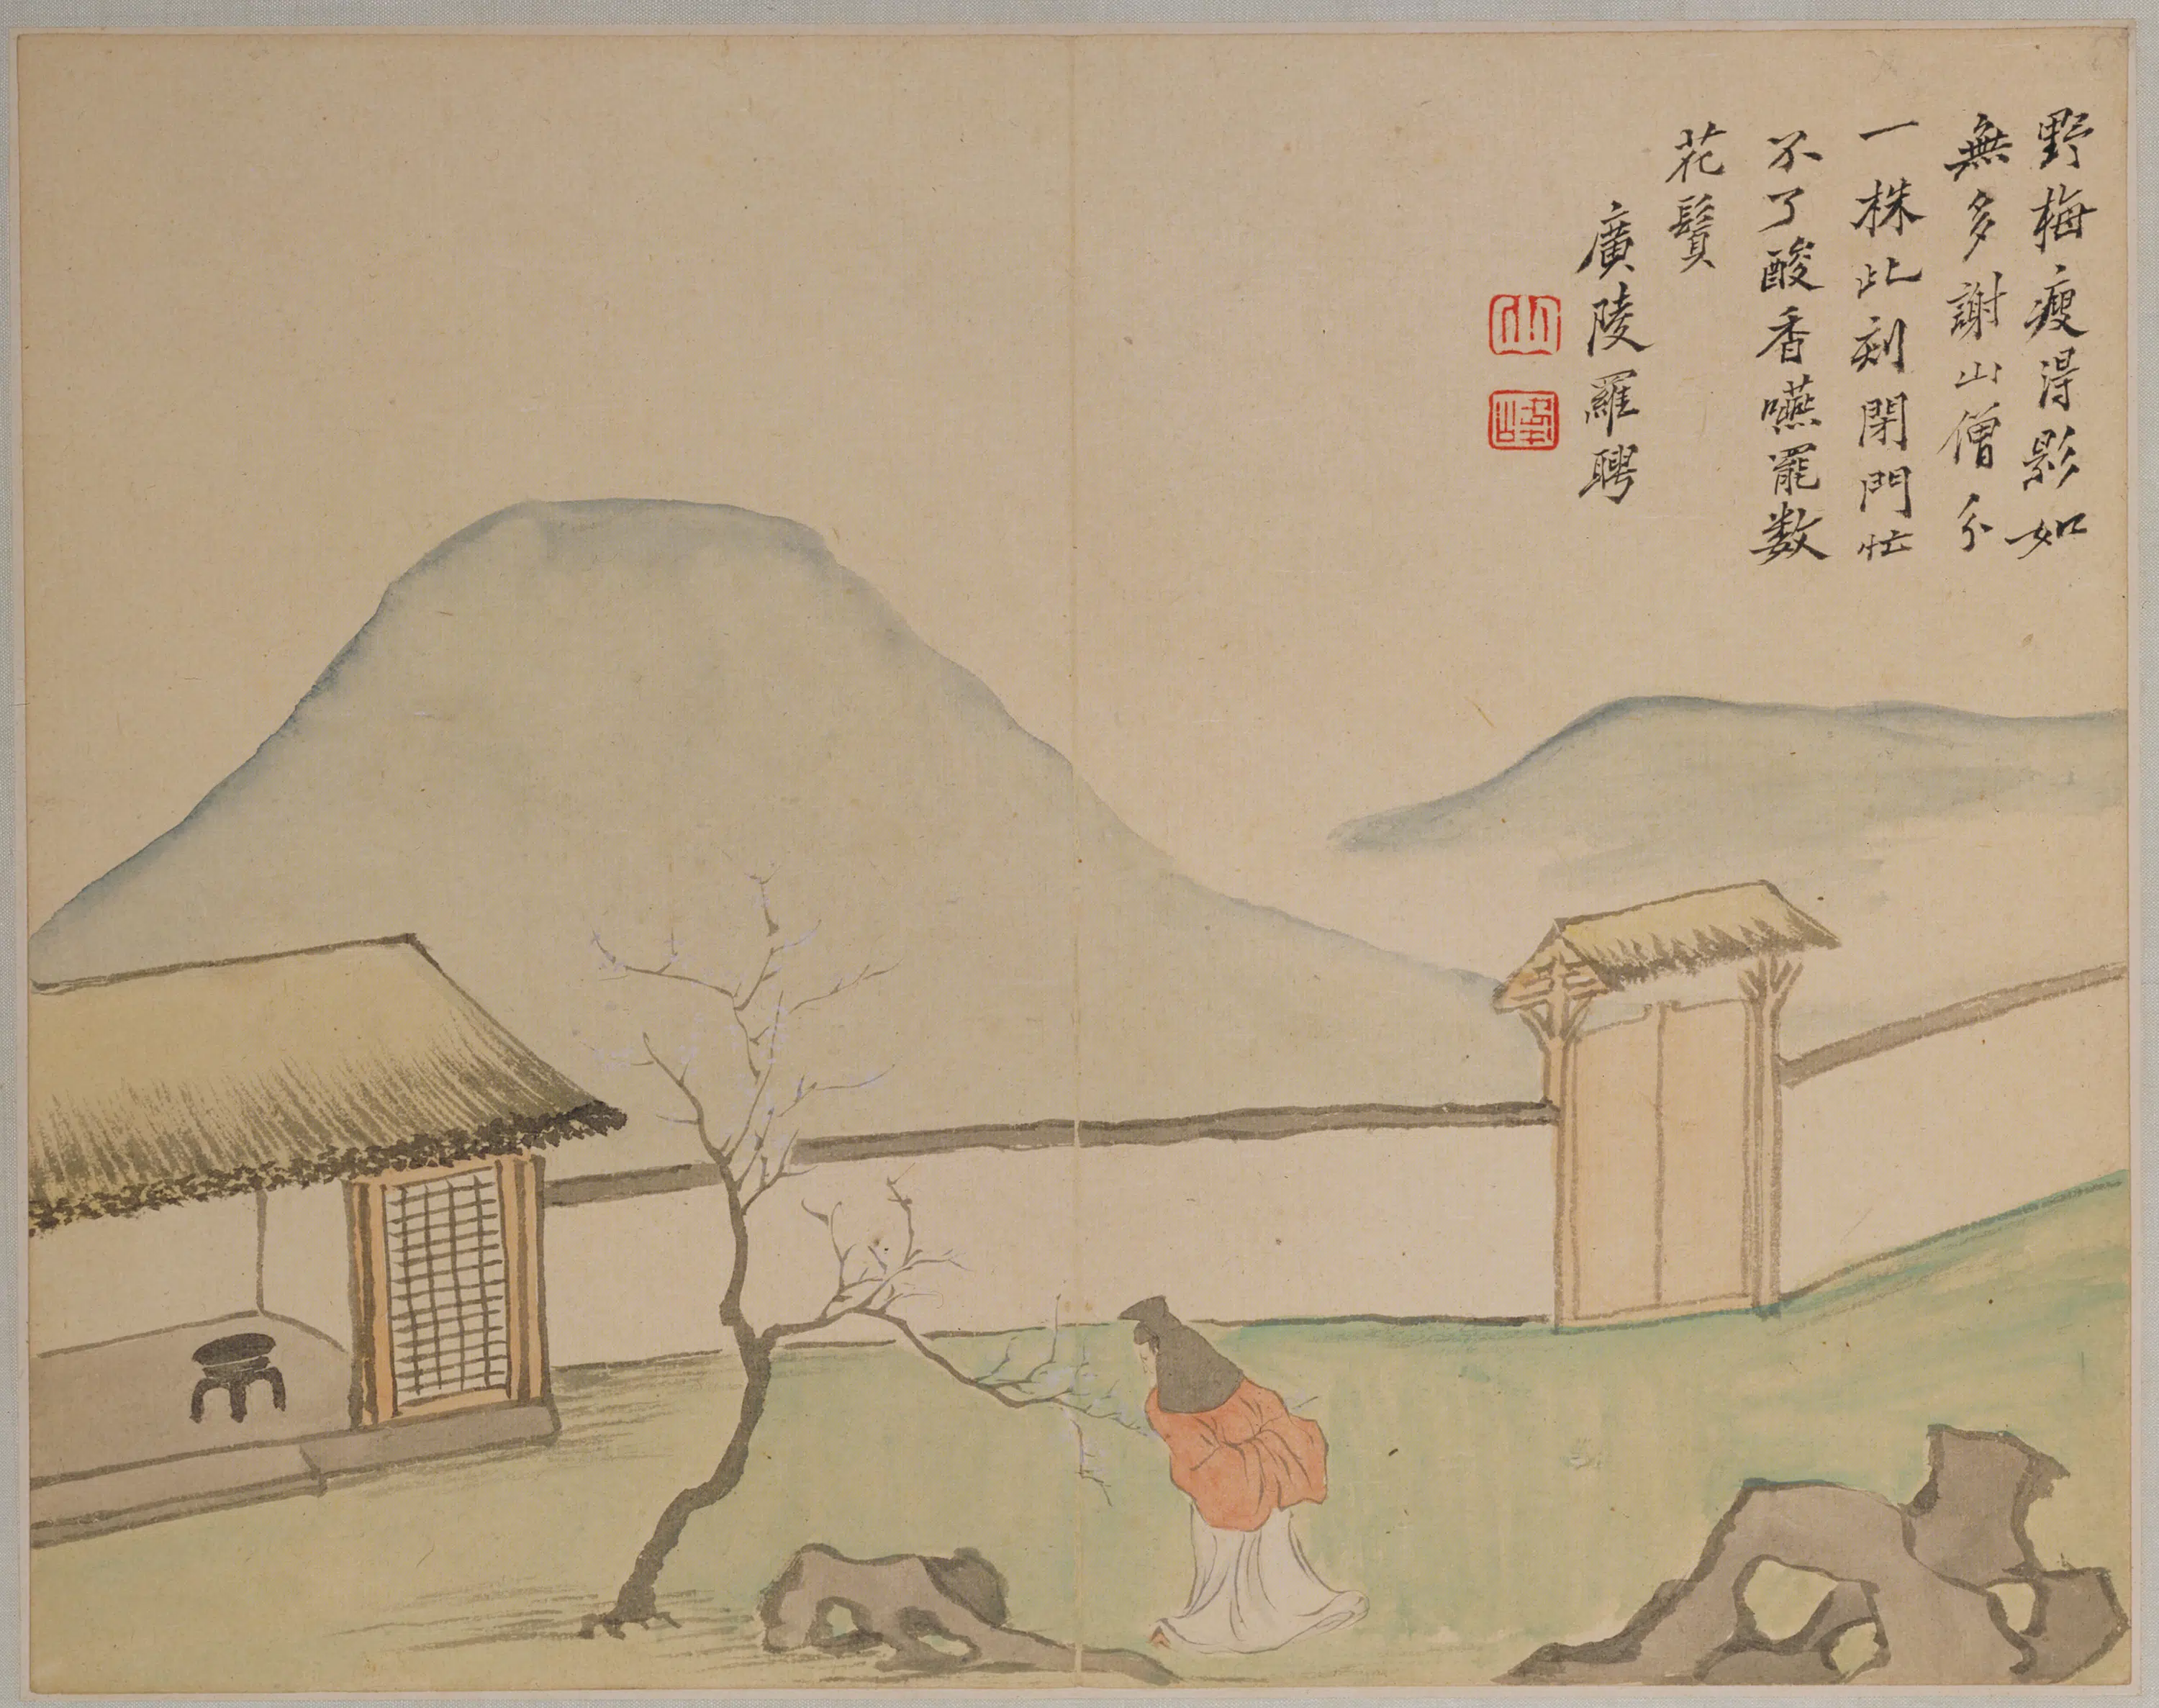 野梅瘦得影如
無多謝山僧分
一株此刻閉門忙
不了酸香嚥罷数
花鬚
廣陵羅聘